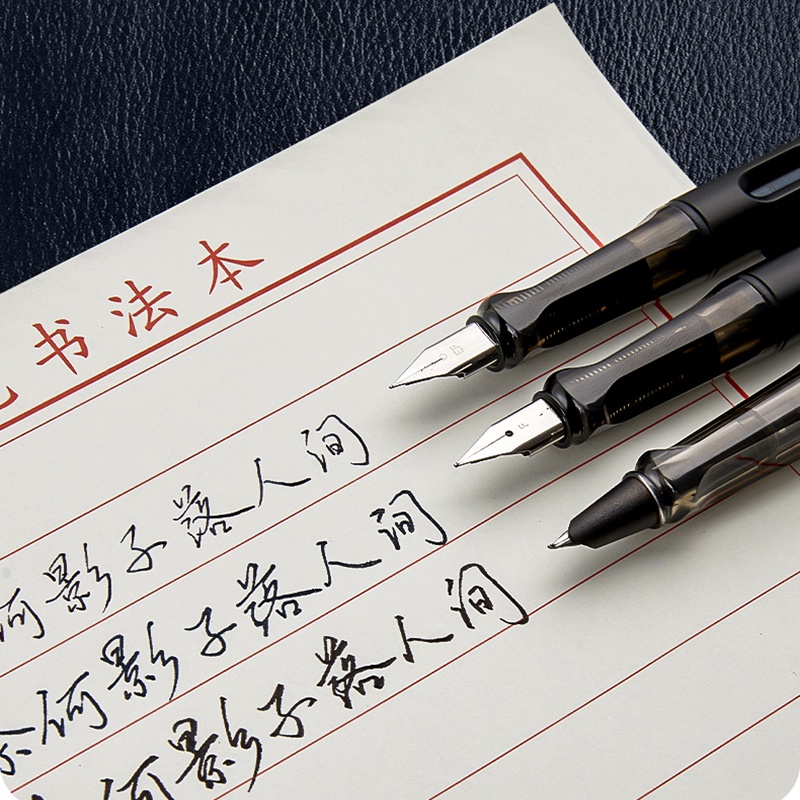 书法本
何影子落人间
奈何影子落人间
何影子落人间